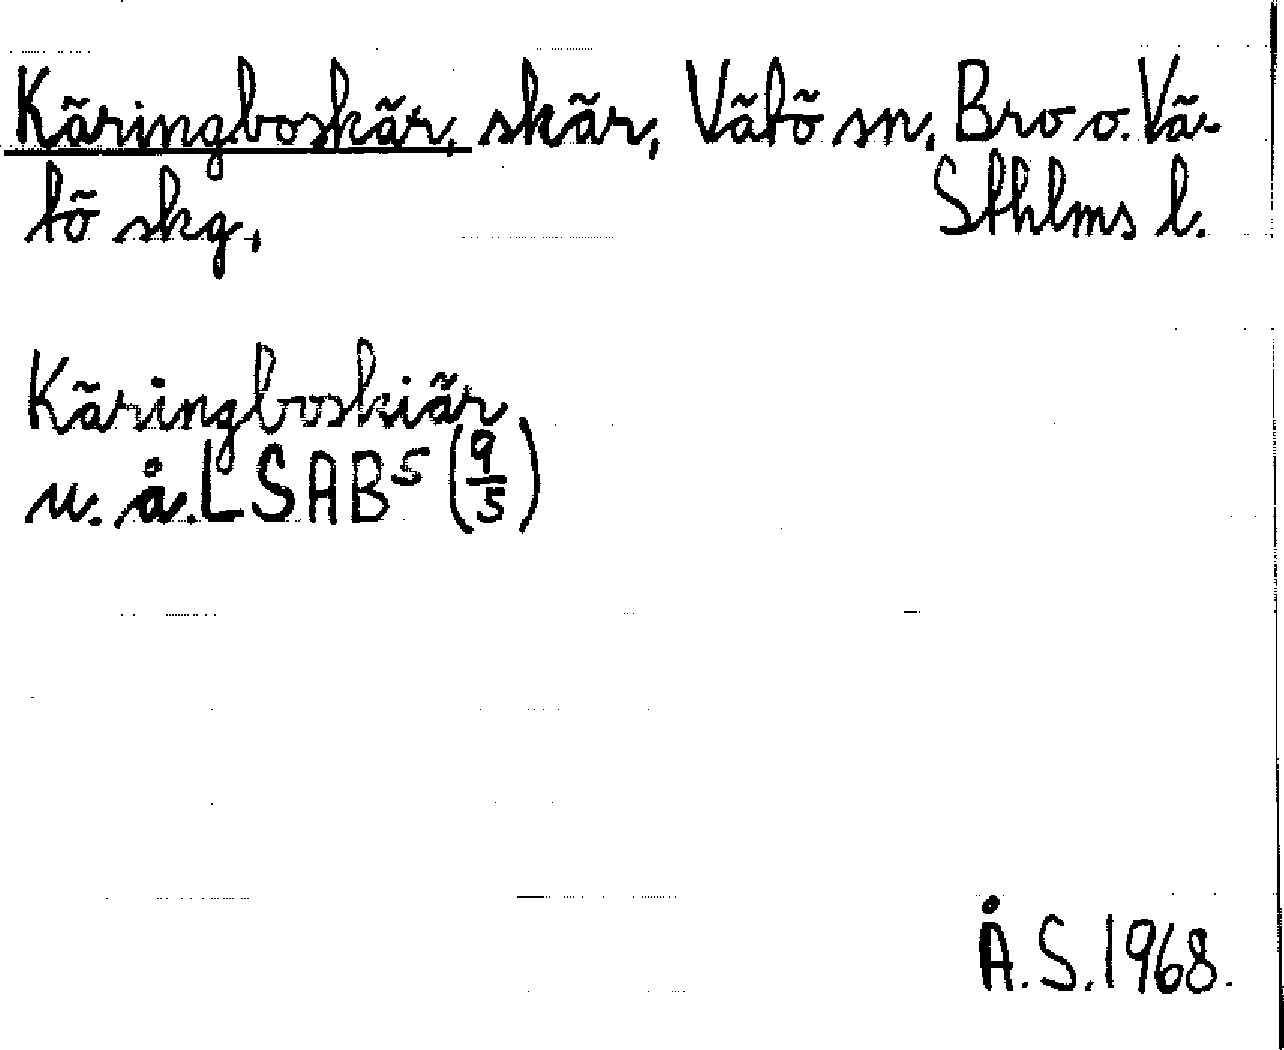 Käringboskär, skär, Vätö sn, Bro o. Vä-
tö skg, Sthlms l.
Käringboskiär
u. å. LSAB5 (9/5)
Å. S. 1968.